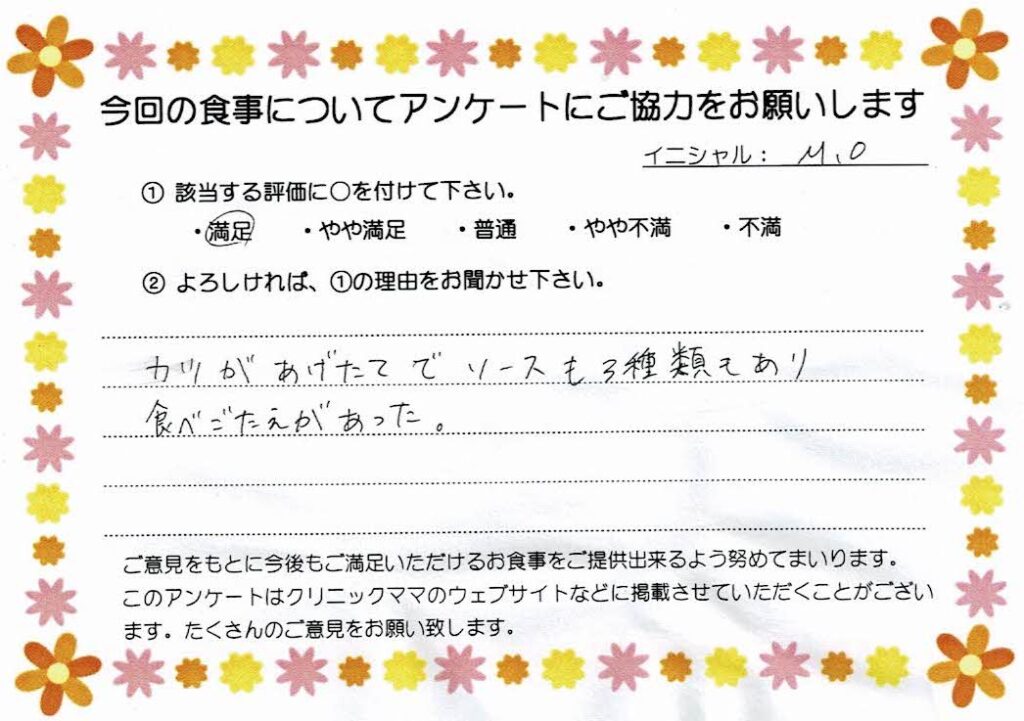 今回の食事についてアンケートにご協力をお願いします
イニシャル： M.O
① 該当する評価に○を付けて下さい。
・満足 ・やや満足 ・普通 ・やや不満 ・不満
② よろしければ、①の理由をお聞かせ下さい。
カツがあげたてでソースも3種類もあり
食べごたえがあった。
ご意見をもとに今後もご満足いただけるお食事をご提供出来るよう努めてまいります。
このアンケートはクリニックママのウェブサイトなどに掲載させていただくことがござい
ます。たくさんのご意見をお願い致します。